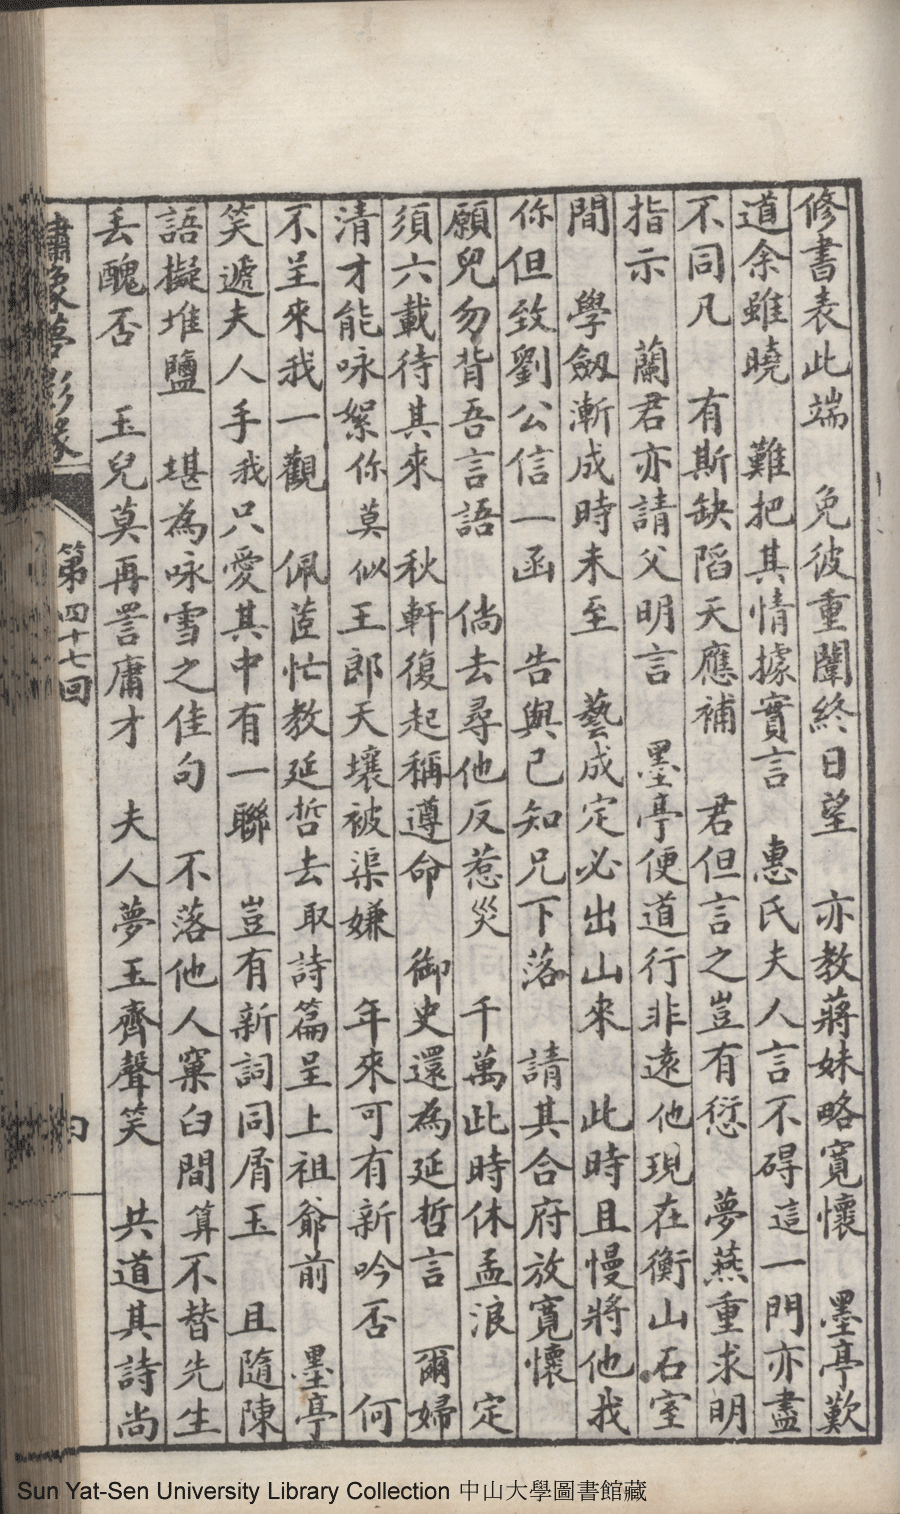 修書表此端　免彼重闈終日望　亦教蔣妹略寬懷　墨亭歎
道余雖曉　難把其情據實言　惠氏夫人言不碍這一門亦盡
不同凡　有斯缺陷天應補　君但言之豈有愆　夢燕重求明
指示　蘭君亦請父明言　墨亭便道行非遠他現在衡山石室
間　學劔漸成時未至　藝成定必出山來　此時且慢將他我
你但致劉公信一函　告與已知兄下落　請其合府放寬懷
願兒勿背吾言語　倘去尋他反惹災　千萬此時休孟浪　定
須六載待其來　秋軒復起稱遵命　御史還為延哲言　爾婦
清才能咏絮你莫似王郎天壤被渠嫌　年來可有新吟否　何
不呈來我一觀　佩茝忙教延哲去取詩篇呈上祖爺前　墨亭
笑遞夫人手我只愛其中有一聯　豈有新詞同屑玉　且隨陳
語擬堆鹽　堪為咏雪之佳句　不落他人窠臼間算不替先生
丢醜否　玉兒莫再詈庸才　夫人夢玉齊聲笑　共道其詩尚
夢影緣
第四十七回
Sun Yat-Sen University Library Collection 中山大學圖書館藏